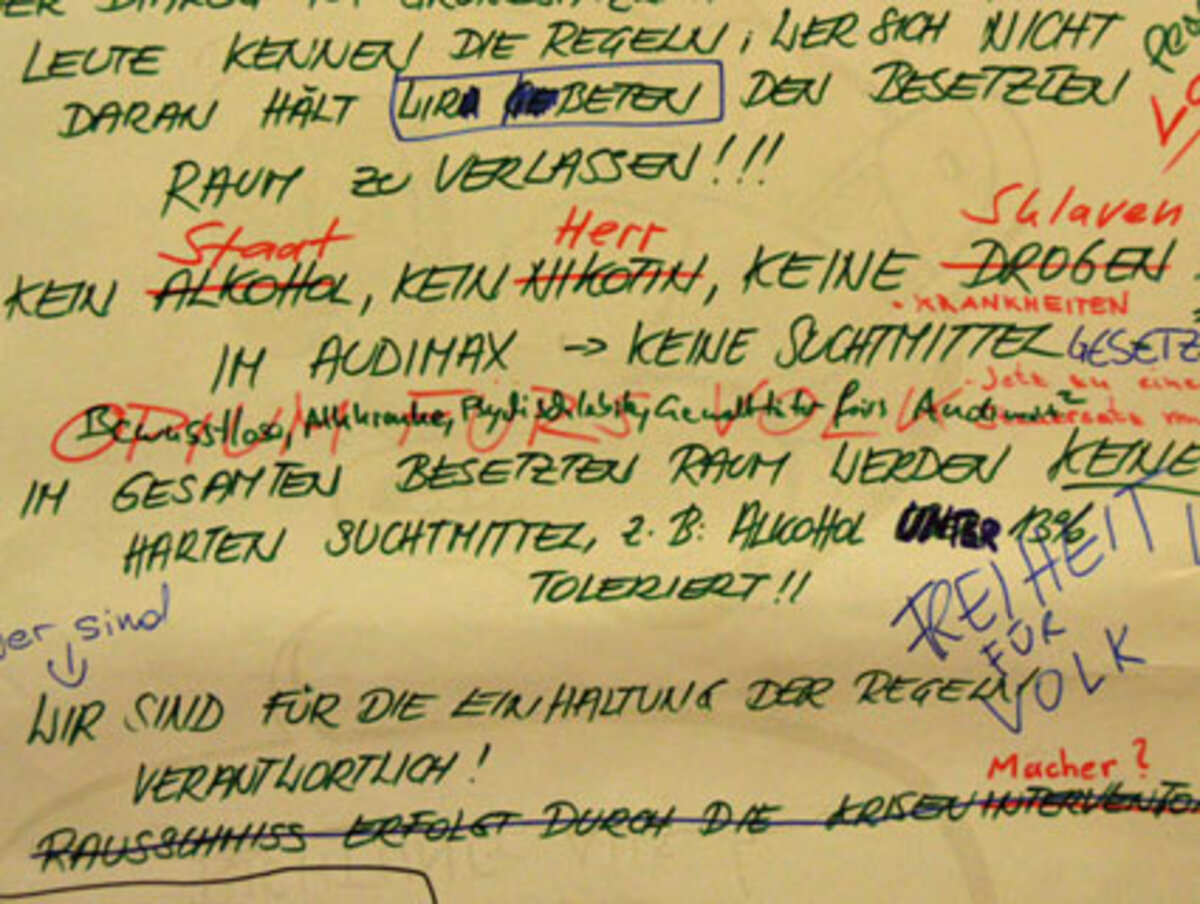 LEUTE KENNEN DIE REGELN, WER SICH NICHT
DARAN HÄLT WIR BETEN DEN BESETZTEN
RAUM ZU VERLASSEN!!!
Staat Herr Sklaven
KEIN ALKOHOL, KEIN NIKOTIN, KEINE DROGEN
KRANKHEITEN
IM AUDIMAX → KEINE SUCHTMITTEL GESETZ
OPIUM FÜRS VOLK
Bewusstlose, Alkkranke,
IM GESAMTEN BESETZTEN RAUM WERDEN KEINE
HARTEN SUCHTMITTEL, Z.B: ALKOHOL UNTER 13%
TOLERIERT!!
FREIHEIT
FÜR
VOLK
sind
WIR SIND FÜR DIE EINHALTUNG DER REGELN
VERANTWORTLICH!
Macher?
RAUSSCHMISS ERFOLGT DURCH DIE KRISEN